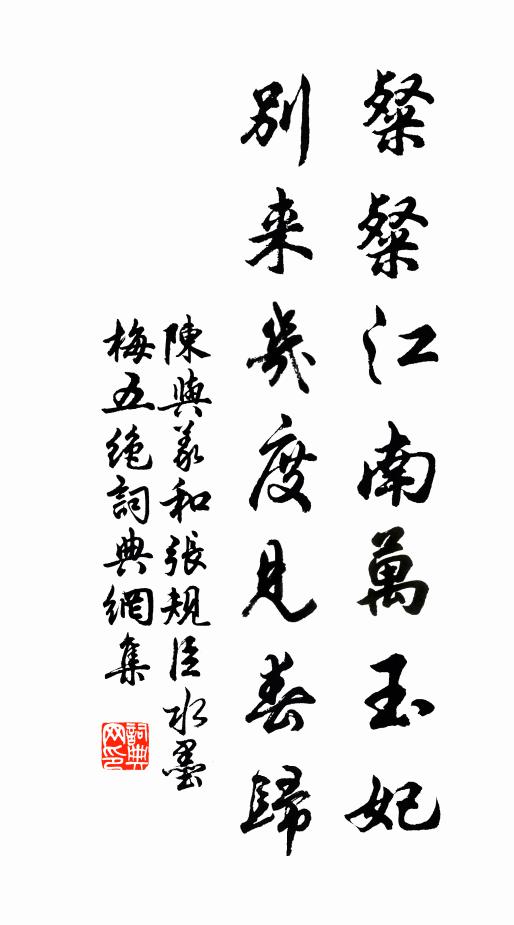 粲粲江南萬玉妃
別来幾度見春歸
陳與義和張規臣水墨
梅五絶詞典網集
詞典
网印